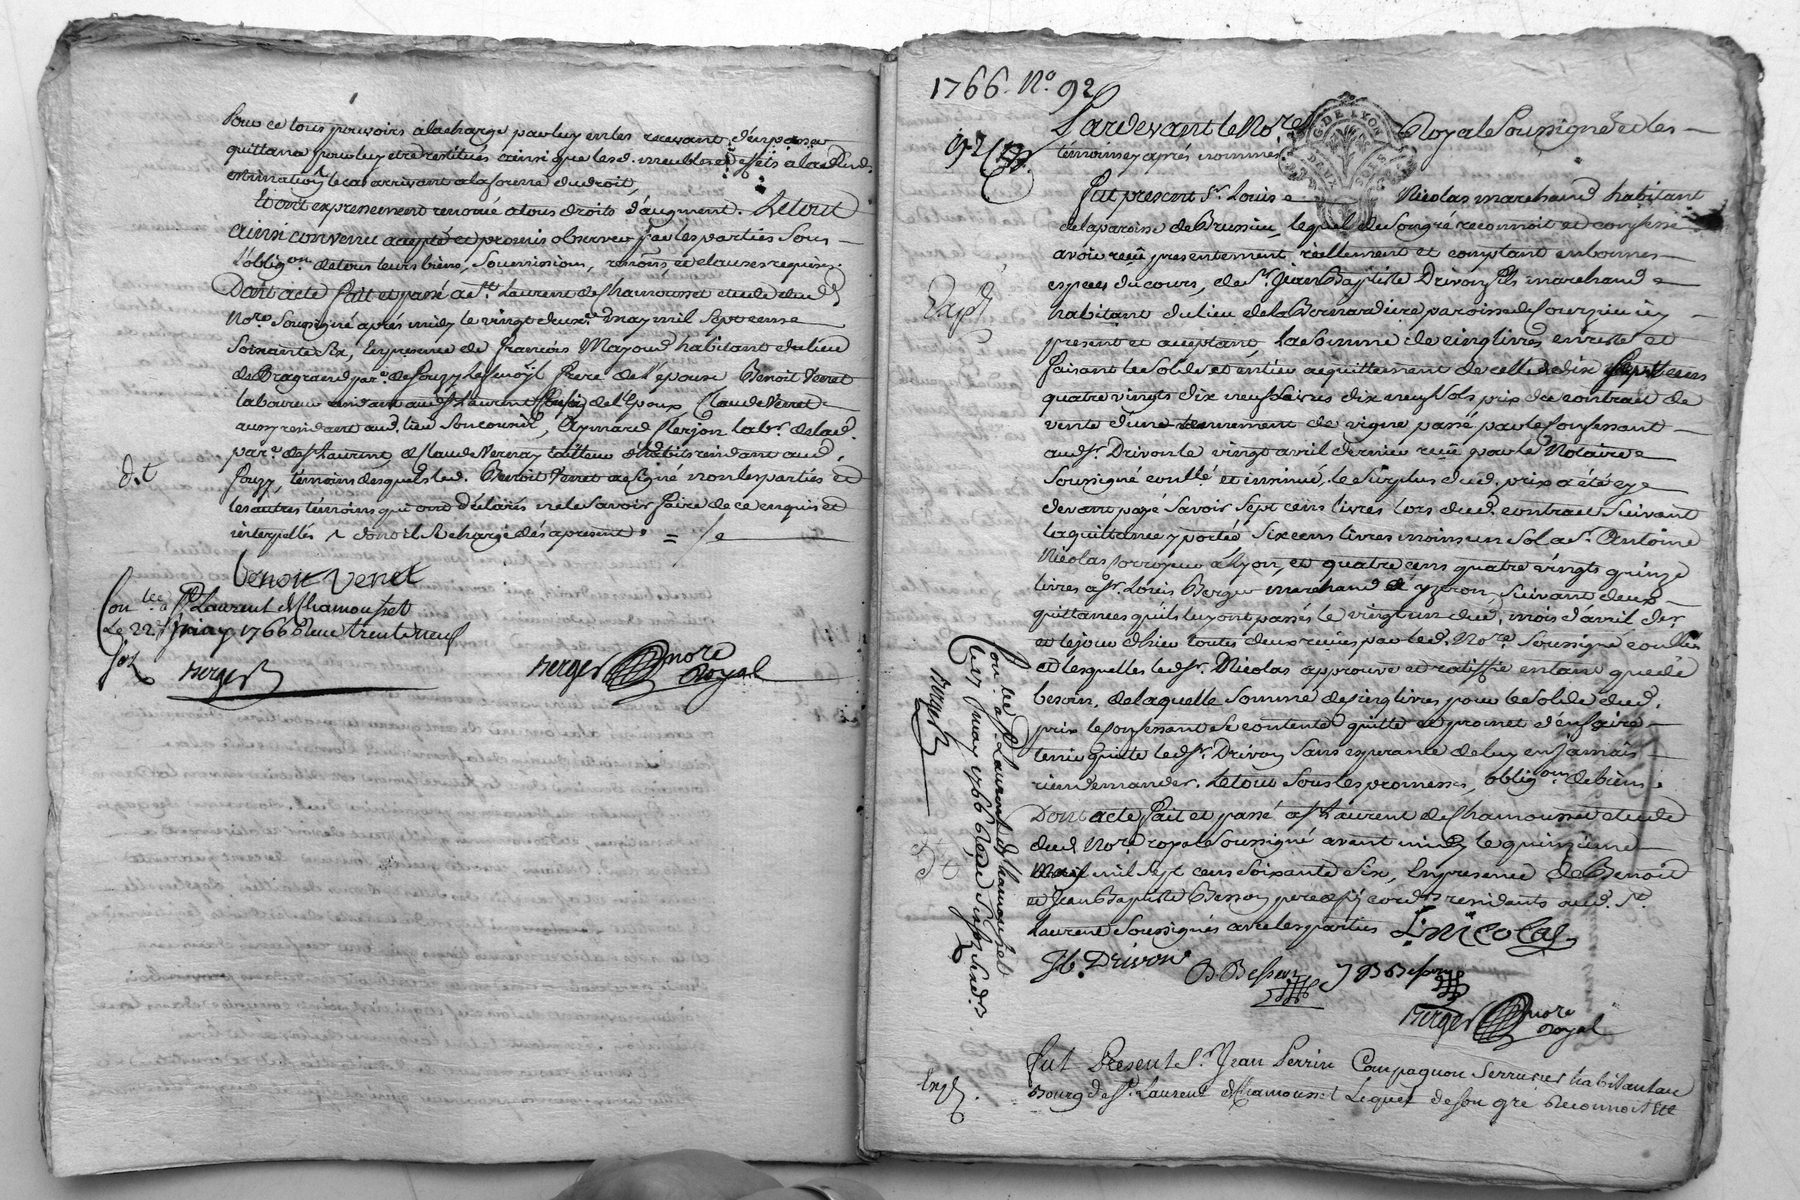 pour ce tous pouvoirs a la charge par luy en les recevant d'en passer
quittance pour luy etre restitués ainsi que lesd. meubles et effets a lad.
estimation le cas arrivant a la forme du droit,
Et ont expressement renoncé a tous droits d'augment. Le tout
ainsi convenu accepté et promis observer par les parties sous
l'oblig.on de tous leurs biens, soumissions, renons, et clauses requises.
Dont acte fait et passé a St. Laurent de Chamousset etude dud.
Nore. soussigné après midy le vingt deux.e may mil sept cens
soixante six, En presence de François Mayoud habitant du lieu
de Bragrand par.e de Pouzy, frere de l'epouse Benoit Verret
laboureur residant aud. St Laurent cousin de l'Epoux, Claude Verret
aussy residant aud. lieu son cousin, Aymard labr. de lad.
par.e de St Laurent, et Claude Vernay tailleur d'habits residant aud.
Pouzy, temoins desquels led. Benoit Verret a signé non les parties et
les autres témoins qui ont déclarés ne le savoir faire de ce enquis et
interpellés
d.t
benoit Verret
Con.lee a St Laurent de Chamousset
Le 22 may 1766 Reçu trente neuf
sols
Berger
Berger nore
Royal
1766. No. 92
92
Pardevant le Nore. Royal Soussigné et les
témoins cy après nommés
G. DE LYON
DEUX SOLS
Fut present Sr. Louis Nicolas marchand habitant
de la paroisse de Brussieu, lequel de son gré reconnoit et confesse
avoir reçû presentement, reellement et comptant en bonnes
especes du cours, de Sr. Jean Baptiste Drivon fils marchand
Expd
habitant du lieu de la Bernardiere paroisse de Courzieu icy
present et acceptant, la somme de cinq livres, en reste et
faisant le solde et entier acquittement de celle de dix sept cens
quatre vingts dix neuf Livres dix neuf sols prix du contrait de
vente d'une tenement de vigne passé par le confessant
aud. Sr. Drivon le vingt avril dernier reçû par le Notaire
soussigné conllé et insinué, le surplus dud. prix a été cy
devant payé savoir sept cens livres lors dud. contrait suivant
la quittance y portée six cens livres moins un sol a Sr. Antoine
Nicolas a Lyon, et quatre cens quatre vingts quinze
livres a Sr. Louis Berger marchand a yzeron, suivant deux
quittances qu'ils luy ont passés le vingt un dud. mois d'avril der
et le jour d'hier toutes deux reçues par led. Nore. soussigné conllés
et lesquelles led. Sr. Nicolas approuve et ratiffie en tant que de
besoin, de laquelle somme de cinq livres pour le solde dud.
prix le confessant se contente quitte et promet d'en faire
tenir quitte led. Sr. Drivon sans esperance de luy en jamais
rien demander. Le tout sous les promesses, oblig.on de biens.
Dont acte fait et passé a St Laurent de Chamousset etude
dud. Nore. royal soussigné avant midy le quinzieme
May mil sept cens soixante six, En presence de Benoit
et Jean Baptiste Besson pere et fils cord.rs residants aud. St.
Laurent soussignés avec les parties
L. Nicolas
Con.lee a St. Laurent de Chamousset
Le 17 may 1766 Reçu
Berger
Jb. Drivon
B Besson
J B Besson
Berger nore
Royal
Fut Present Sr. Jean Perrin Compagnon Serrurier habitant au
Expd.
Bourg de St. Laurent de Chamousset Lequel de son gré Reconnoit et